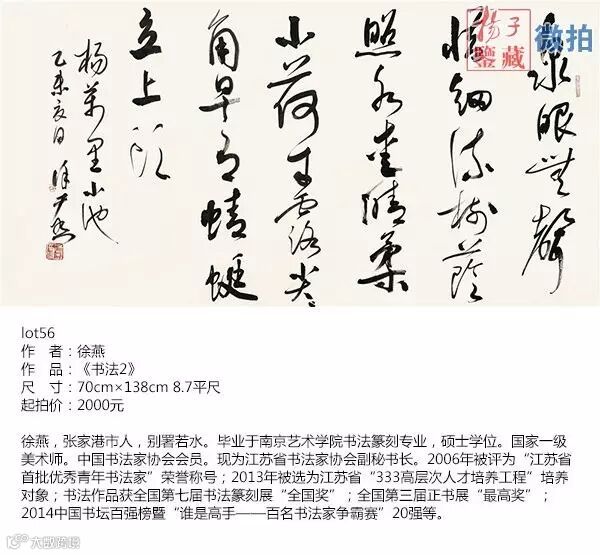 泉眼無聲
惜細流樹蔭
照水愛晴柔
小荷才露尖々
角早有蜻蜓
立上頭
楊萬里小池
乙未夏日 徐燕
揚子
鑒藏
微拍
lot56
作 者：徐燕
作 品：《书法2》
尺 寸：70cm×138cm 8.7平尺
起拍价：2000元
徐燕，张家港市人，别署若水。毕业于南京艺术学院书法篆刻专业，硕士学位。国家一级
美术师。中国书法家协会会员。现为江苏省书法家协会副秘书长。2006年被评为“江苏省
首批优秀青年书法家”荣誉称号；2013年被选为江苏省“333高层次人才培养工程”培养
对象；书法作品获全国第七届书法篆刻展“全国奖”；全国第三届正书展“最高奖”；
2014中国书坛百强榜暨“谁是高手——百名书法家争霸赛”20强等。
大数跨境